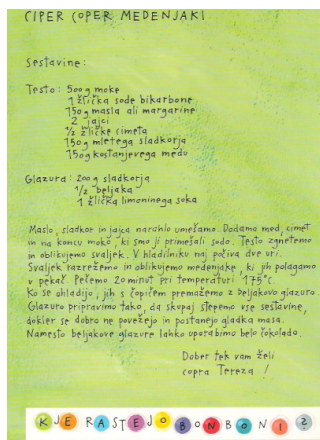 CIPER COPER MEDENJAKI
Sestavine:
Testo: 500 g moke
1 žlička sode bikarbone
150 g masla ali margarine
2 jajci
1/2 žličke cimeta
150 g mletega sladkorja
150 g kostanjevega medu
Glazura: 200 g sladkorja
1/2 beljaka
1 žlička limoninega soka
Maslo, sladkor in jajca narahlo umešamo. Dodamo med, cimet
in na koncu moko, ki smo ji primešali sodo. Testo zgnetemo
in oblikujemo svaljek. V hladilniku naj počiva dve uri.
Svaljek razrežemo in oblikujemo medenjake, ki jih polagamo
v pekač. Pečemo 20 minut pri temperaturi 175°C.
Ko se ohladijo, jih s čopičem premažemo z beljakovo glazuro.
Glazuro pripravimo tako, da skupaj stepemo vse sestavine,
dokler se dobro ne povežejo in postanejo gladka masa.
Namesto beljakove glazure lahko uporabimo belo čokolado.
Dober tek vam želi
copra Tereza!
KJE RASTEJO BONBONI?